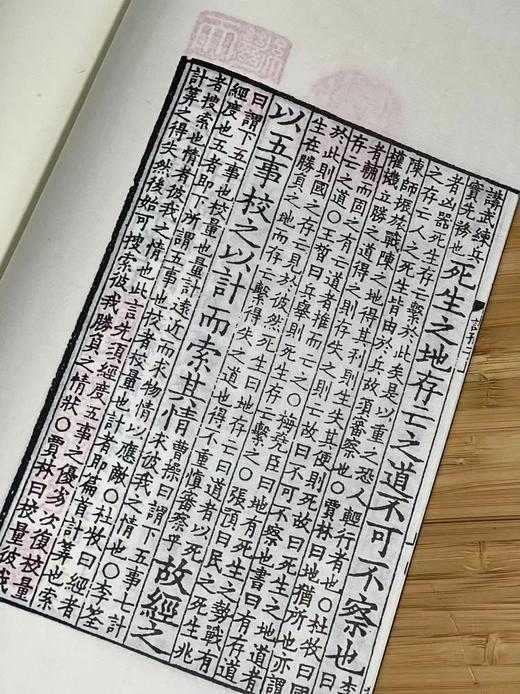 講武練兵
實先務也
死生之地存亡之道不可不察也
者凶器死生存亡繫於此矣是以重之恐人輕行者也○杜牧曰國
之存亡人之死生皆由於兵故須審察也○賈林曰地猶所也亦謂
陳師振旅戰陳之地得其利則生失其便則死故曰死生之地道者
權機立勝之道得之則存失之則亡故曰不可不察也書曰有存道
者輔而固之有亡道者推而亡之○梅堯臣曰地有死生之勢戰有
存亡之道○王晳曰兵舉則死生存亡繫之○張預曰民之死生兆
於此則國之存亡見於彼然死生曰地存亡曰道者以死
生在勝負之地而存亡繫得失之道也得不重慎審察乎
故經之
以五事校之以計而索其情
曹操曰謂下五事七計
求彼我之情也○李筌
曰謂下五事也校量也量計遠近而求物情以應敵○杜牧曰經者
經度也五者即下所謂五事也校者校量也計者即篇首計算也索
者搜索也情者彼我之情也此言先須經度五事之優劣次復校量
計算之得失然後始可搜索彼我勝負之情狀○賈林曰校量彼我